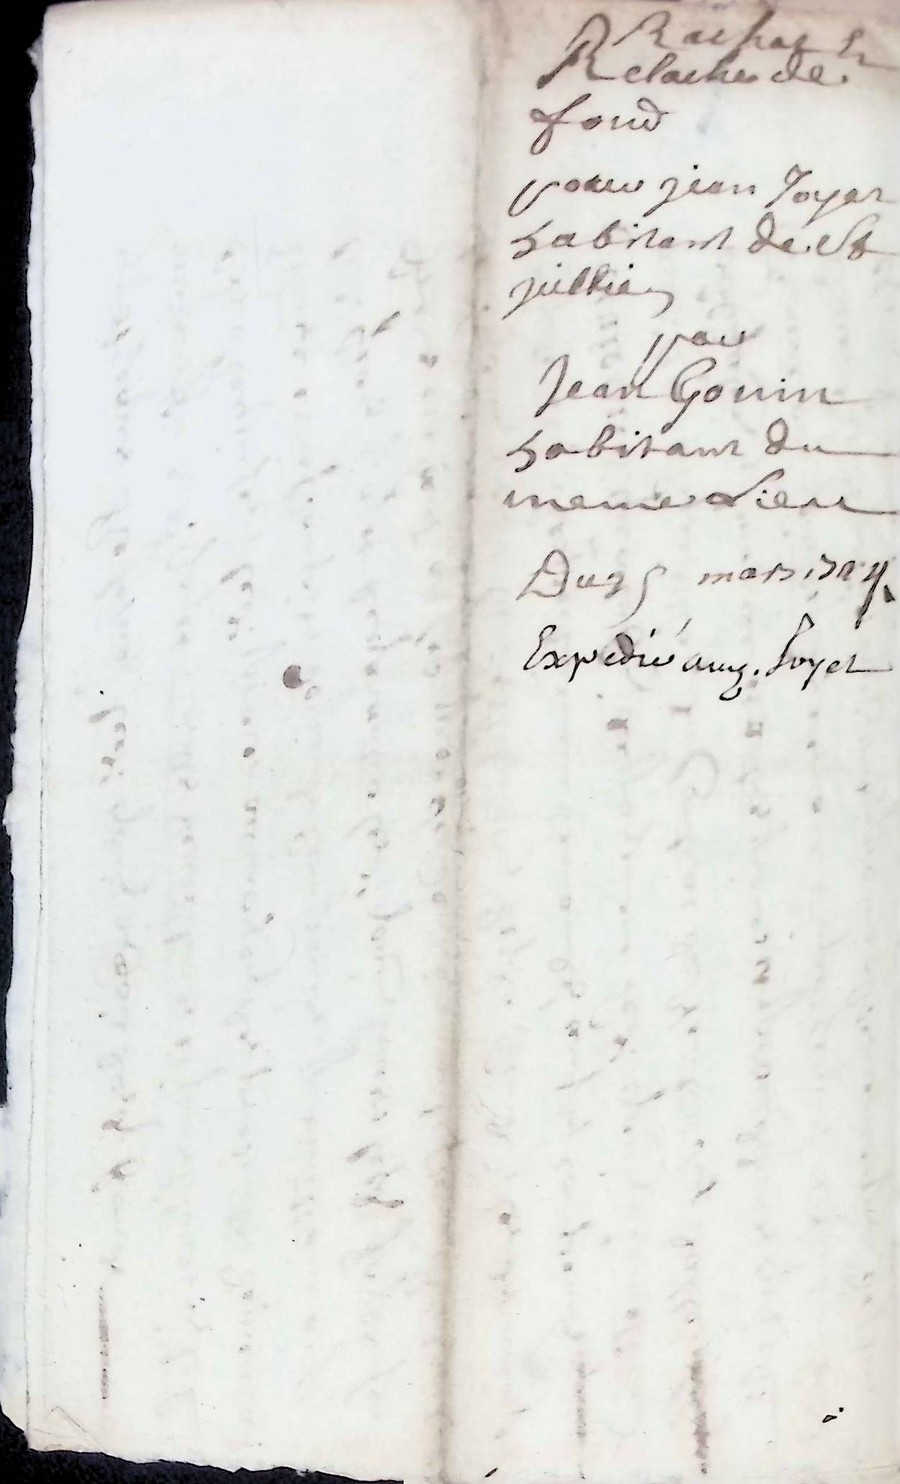 Rachat Et
Relaches de
fond
pour jean Joyer
habitant de St
jullien
par
Jean Gouin
habitant du
meme Lieu
Du 25 mars 1724
Expedié aud. Joyer